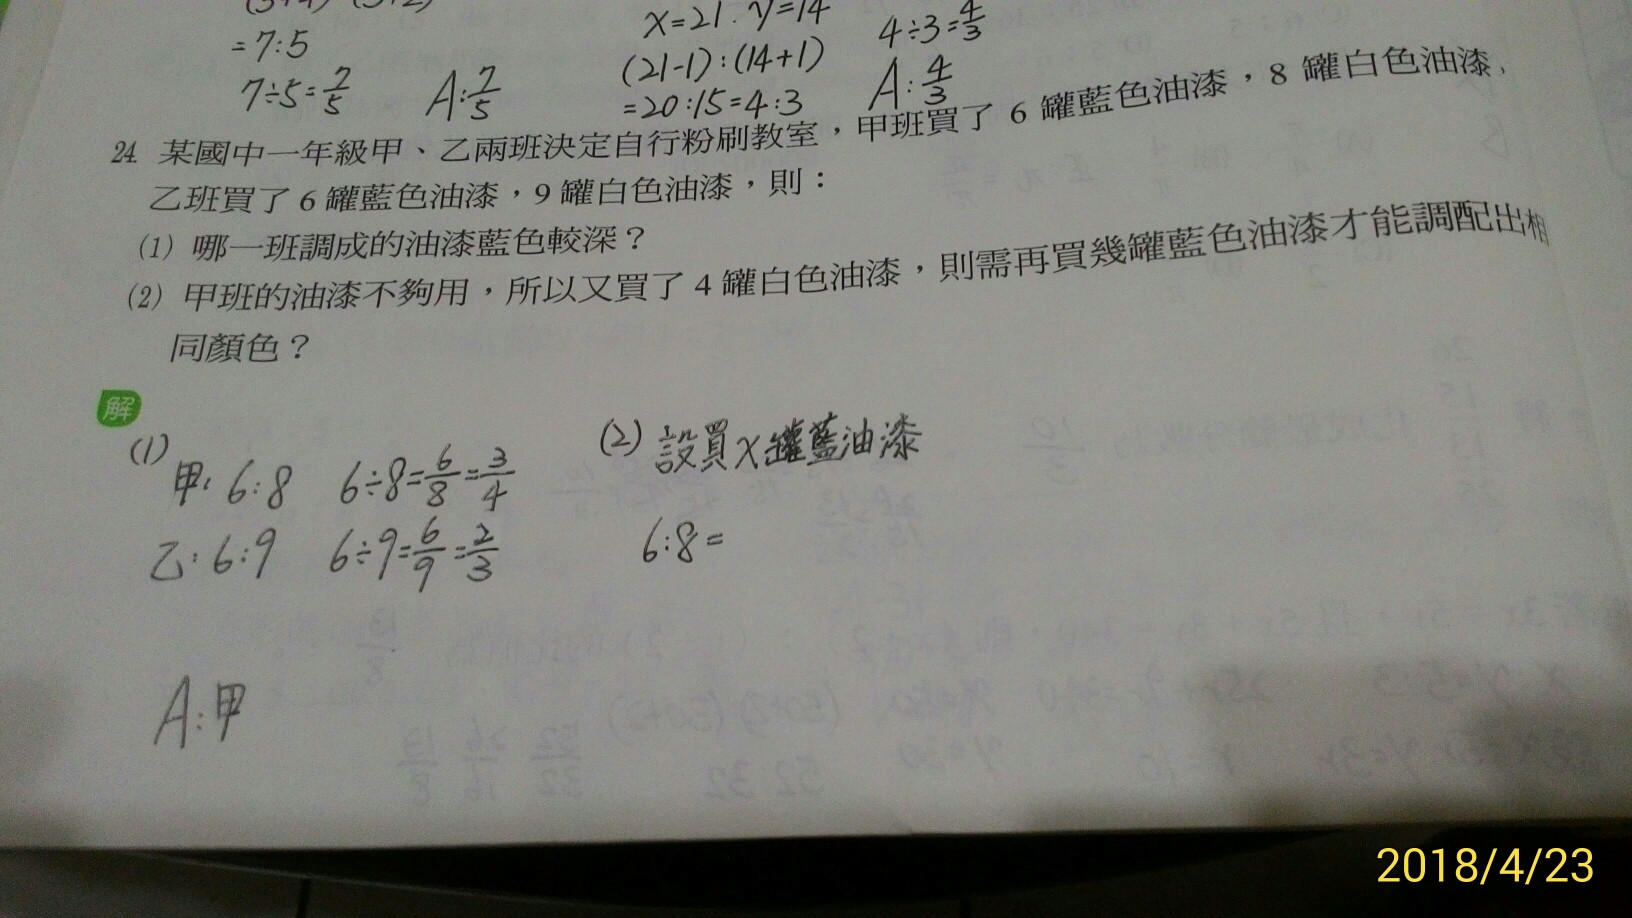 = 7:5
7÷5=7/5
A:7/5
x=21. y=14
(21-1):(14+1)
=20:15=4:3
4÷3=4/3
A:4/3
24. 某國中一年級甲、乙兩班決定自行粉刷教室，甲班買了 6 罐藍色油漆，8 罐白色油漆，
乙班買了 6 罐藍色油漆，9 罐白色油漆，則：
(1) 哪一班調成的油漆藍色較深？
(2) 甲班的油漆不夠用，所以又買了 4 罐白色油漆，則需再買幾罐藍色油漆才能調配出相
同顏色？
解
(1)
甲: 6:8 6÷8=6/8=3/4
乙: 6:9 6÷9=6/9=2/3
A:甲
(2) 設買x罐藍油漆
6:8=
2018/4/23